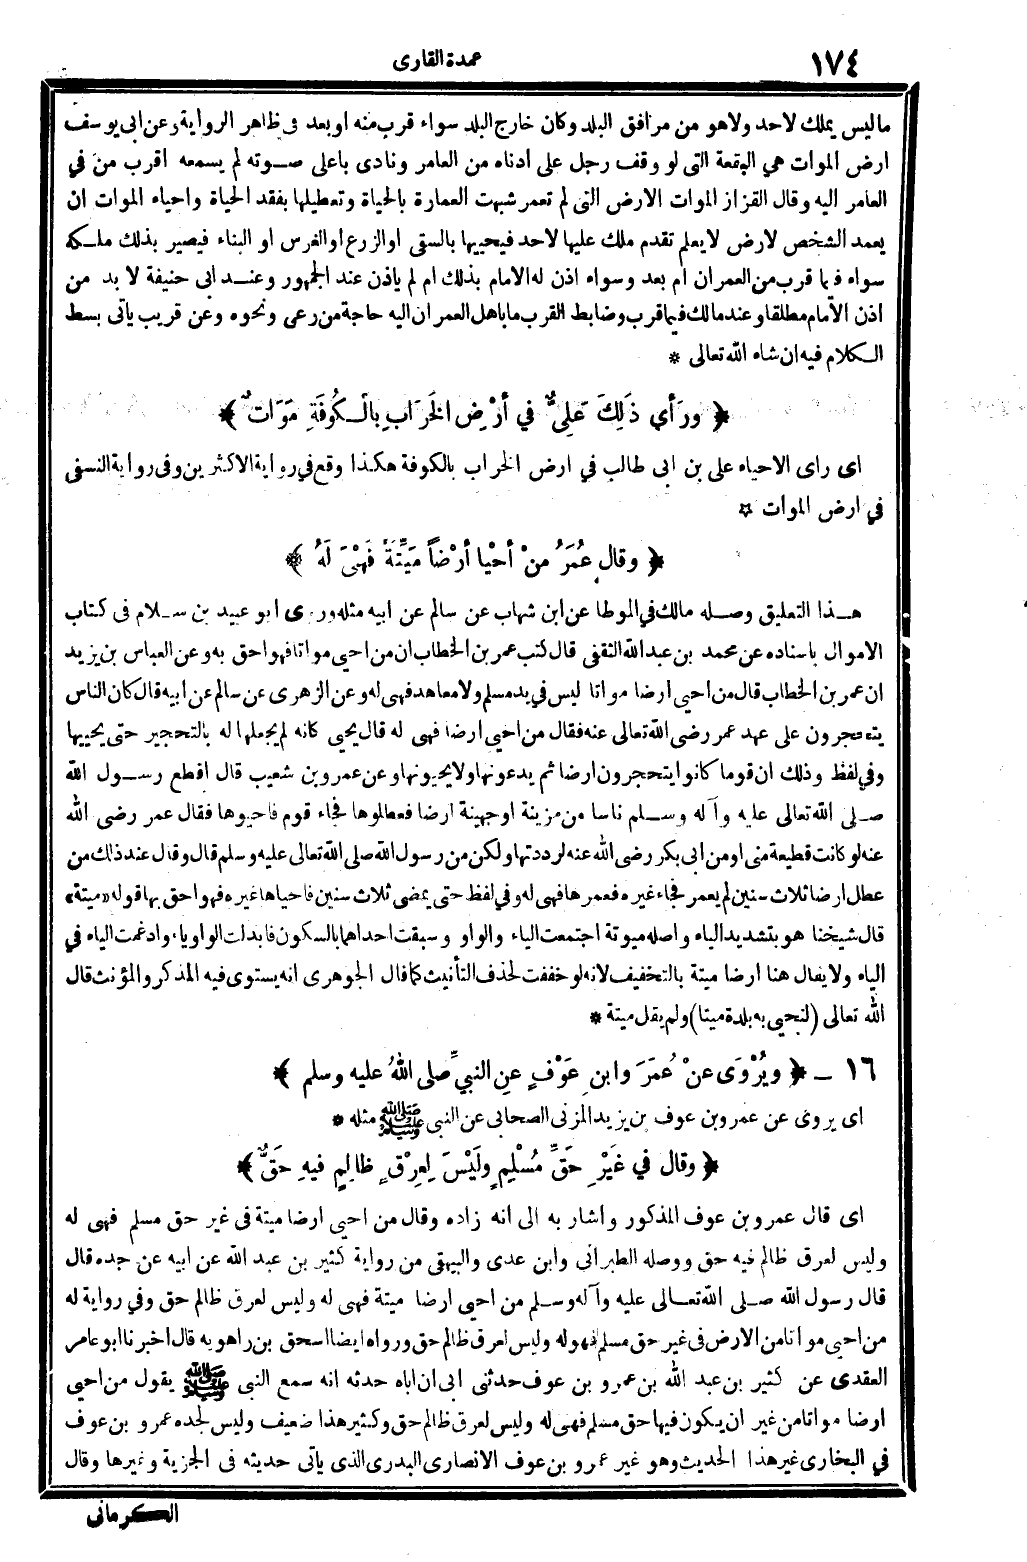 ١٧٤
عمدة القارى
ماليس يملك لاحد ولاهو من مرافق البلد وكان خارج البلد سواء قرب منه اوبعد فى ظاهر الرواية وعن ابى يوسف
ارض الموات هي البقعة التى لو وقف رجل على أدناه من العامر ونادى باعلى صـوته لم يسمعه أقرب من في
العامر اليه وقال القزاز الموات الارض التى لم تعمر شبهت العمارة بالحياة وتعطيلها بفقد الحياة واحياء الموات ان
يعمد الشخص لارض لايعلم تقدم ملك عليها لاحد فيحييها بالسقى اوالزرع اوالغرس او البناء فيصير بذلك ملـكه
سواء فيما قرب من العمران ام بعد وسواء اذن له الامام بذلك ام لم ياذن عند الجمهور وعنـد ابى حنيفة لا بد من
اذن الامام مطلقا وعند مالك فيما قرب وضابط القرب ما باهل العمران اليه حاجة من رعى ونحوه وعن قريب ياتى بسط
الـكلام فيه ان شاء الله تعالى *
﴿ ورَأي ذَلِكَ عَلِيٌّ في أرْضِ الخَرَابِ بالْـكُوفَةِ مَوَاتٌ ﴾
اى راى الاحياء على بن ابى طالب في ارض الخراب بالكوفة هكذا وقع في رواية الاكثرين وفى رواية النسفى
في ارض الموات *
﴿ وقال عُمَرُ مَنْ أحْيا أرْضاً مَيِّتَةً فَهْيَ لَهُ ﴾
هـذا التعليق وصـله مالك في الموطا عن ابن شهاب عن سالم عن ابيه مثله وروى ابو عبيد بن سـلام فى كتاب
الاموال باسناده عن محمد بن عبد الله الثقفى قال كتب عمر بن الخطاب ان من احيى مواتا فهو احق به وعن العباس بن يزيد
ان عمر بن الخطاب قال من احيى ارضا مواتا ليس في يد مسلم ولا معاهد فهى له وعن الزهرى عن سالم عن ابيه قال كان الناس
يتحجرون على عهد عمر رضى الله تعالى عنه فقال من احيى ارضا فهى له قال يحيى كانه لم يجعلها له بالتحجير حتى يحييها
وفي لفظ وذلك ان قوما كانوا يتحجرون ارضا ثم يدعونها ولا يحيونها وعن عمرو بن شعيب قال اقطع رسـول الله
صـلى الله تعالى عليه وآله وسـلم ناسا من مزينة او جهينة ارضا فعطلوها فجاء قوم فاحيوها فقال عمر رضى الله
عنه لو كانت قطيعة منى او من ابى بكر رضى الله عنه لرددتها ولكن من رسول الله صلى الله تعالى عليه وسلم قال وقال عند ذلك من
عطل ارضا ثلاث سنين لم يعمر فجاء غيره فعمرها فهى له وفي لفظ حتى يمضى ثلاث سنين فاحياها غيره فهو احق بها قوله «ميتة»
قال شيخنا هو بتشديد الياء واصله ميوتة اجتمعت الياء والواو وسبقت احداهما بالسكون فابدلت الواو ياء وادغمت الياء في
الياء ولا يقال هنا ارضا ميتة بالتخفيف لانه لو خففت لحذف التأنيث كما قال الجوهرى انه يستوى فيه المذكر والمؤنث قال
الله تعالى (لنحيي به بلدة ميتا) ولم يقل ميتة *
١٦ ــ ﴿ ويُرْوَى عنْ عُمَرَ وابنِ عَوْفٍ عنِ النبيِّ صلى اللهُ عليه وسلم ﴾
اى يروى عن عمرو بن عوف بن يزيد المزنى الصحابى عن النبى ﷺ مثله *
﴿ وقال في غَيْرِ حَقِّ مُسْلِمٍ ولَيْسَ لِعِرْقٍ ظالِمٍ فيهِ حَقٌّ ﴾
اى قال عمرو بن عوف المذكور واشار به الى انه زاده وقال من احيى ارضا ميتة فى غير حق مسلم فهى له
وليس لعرق ظالم فيه حق ووصله الطبرانى وابن عدى والبيهقى من رواية كثير بن عبد الله عن ابيه عن جده قال
قال رسول الله صـلى الله تعـالى عليه وآله وسـلم من احيى ارضا ميتة فهى له وليس لعرق ظالم حق وفي رواية له
من احيى مواتا من الارض فى غير حق مسلم فهو له وليس لعرق ظالم حق ورواه ايضا اسحق بن راهويه قال اخبرنا ابو عامر
العقدى عن كثير بن عبد الله بن عمرو بن عوف حدثنى ابى ان اباه حدثه انه سمع النبى ﷺ يقول من احيى
ارضا مواتا من غير ان يكون فيها حق مسلم فهى له وليس لعرق ظالم حق وكثير هذا ضعيف وليس لجده عمرو بن عوف
في البخارى غير هذا الحديث وهو غير عمرو بن عوف الانصارى البدرى الذى ياتى حديثه فى الجزية وغيرها وقال
الكرمانى